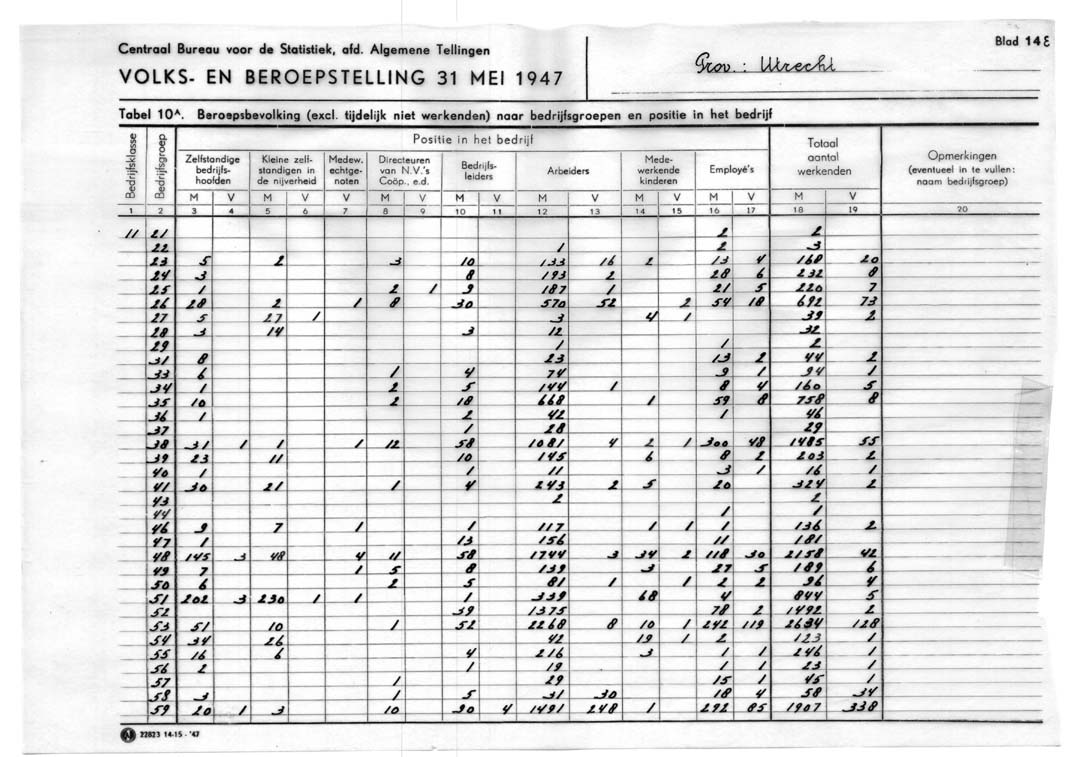 Centraal Bureau voor de Statistiek, afd. Algemene Tellingen
VOLKS- EN BEROEPSTELLING 31 MEI 1947
Prov.: Utrecht
Blad 14E
Tabel 10A. Beroepsbevolking (excl. tijdelijk niet werkenden) naar bedrijfsgroepen en positie in het bedrijf
Bedrijfsklasse Bedrijfsgroep Positie in het bedrijf Totaal aantal werkenden Opmerkingen (eventueel in te vullen: naam bedrijfsgroep)
Zelfstandige bedrijfshoofden Kleine zelfstandigen in de nijverheid Medew. echtgenoten Directeuren van N.V.'s Coöp., e.d. Bedrijfsleiders Arbeiders Medewerkende kinderen Employé's
M V M V V M V M V M V M V M V M V
1 2 3 4 5 6 7 8 9 10 11 12 13 14 15 16 17 18 19 20
11 21 2 2
22 1 2 3
23 5 2 3 10 133 16 2 13 4 168 20
24 3 8 193 2 28 6 232 8
25 1 2 1 9 187 1 21 5 220 7
26 28 2 1 8 30 570 52 2 54 18 692 73
27 5 27 1 3 4 1 39 2
28 3 14 3 12 32
29 1 1 2
31 8 23 13 2 44 2
33 6 1 4 74 9 1 94 1
34 1 2 5 144 1 8 4 160 5
35 10 2 18 668 1 59 8 758 8
36 1 2 42 1 46
37 1 28 29
38 31 1 1 1 12 58 1081 4 2 1 300 48 1485 55
39 23 11 10 145 6 8 2 203 2
40 1 1 11 3 1 16 1
41 30 21 1 4 243 2 5 20 324 2
43 2 2
44 1 1
46 9 7 1 1 117 1 1 1 136 2
47 1 13 156 11 181
48 145 3 48 4 11 58 1744 3 34 2 118 30 2158 42
49 7 1 5 8 139 3 27 5 189 6
50 6 2 5 81 1 1 2 2 96 4
51 202 3 230 1 1 1 339 68 4 844 5
52 39 1375 78 2 1492 2
53 51 10 1 52 2268 8 10 1 242 119 2634 128
54 34 26 42 19 1 2 123 1
55 16 6 4 216 3 1 1 246 1
56 2 1 19 1 1 23 1
57 1 29 15 1 45 1
58 3 1 5 31 30 18 4 58 34
59 20 1 3 10 90 4 1491 248 1 292 85 1907 338
22823 14-15 - '47